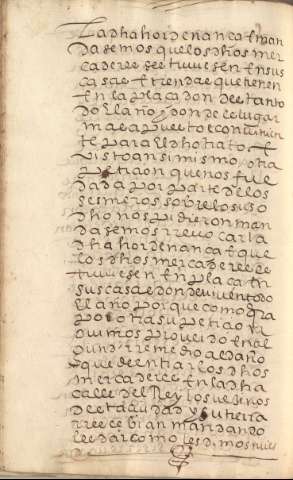 la dha hordenança E man
dasemos que los dhos mer
caderes se estuviesen En sus
casas E tiendas que tienen
En la plaça donde estan to
do El año y donde es lugar
mas apuesto E convenien
te para El dho trato E
visto ansi mismo otra
petiçion que nos fue
dada por parte de los
sesmeros sobre lo suso
dho nos pidieron man
dasemos rrevocar la
dha hordenança E que
los dhos mercaderes se
estuviesen En la plaça En
sus casas E donde viven todo
El año porque como por
por otra su petiçion
ovimos proveido En al
gund rremedio al daño
que de Entrar los dhos
mercaderes En la dha
calle del Rey los vezinos
de esta çiudad y su tierra
rresçebian mandando
les dar como les dimos